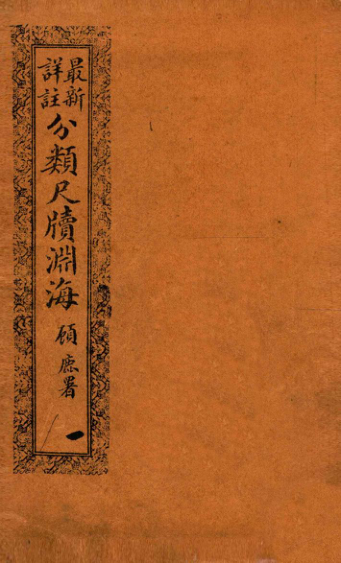 最新
詳註
分類尺牘淵海
署
一